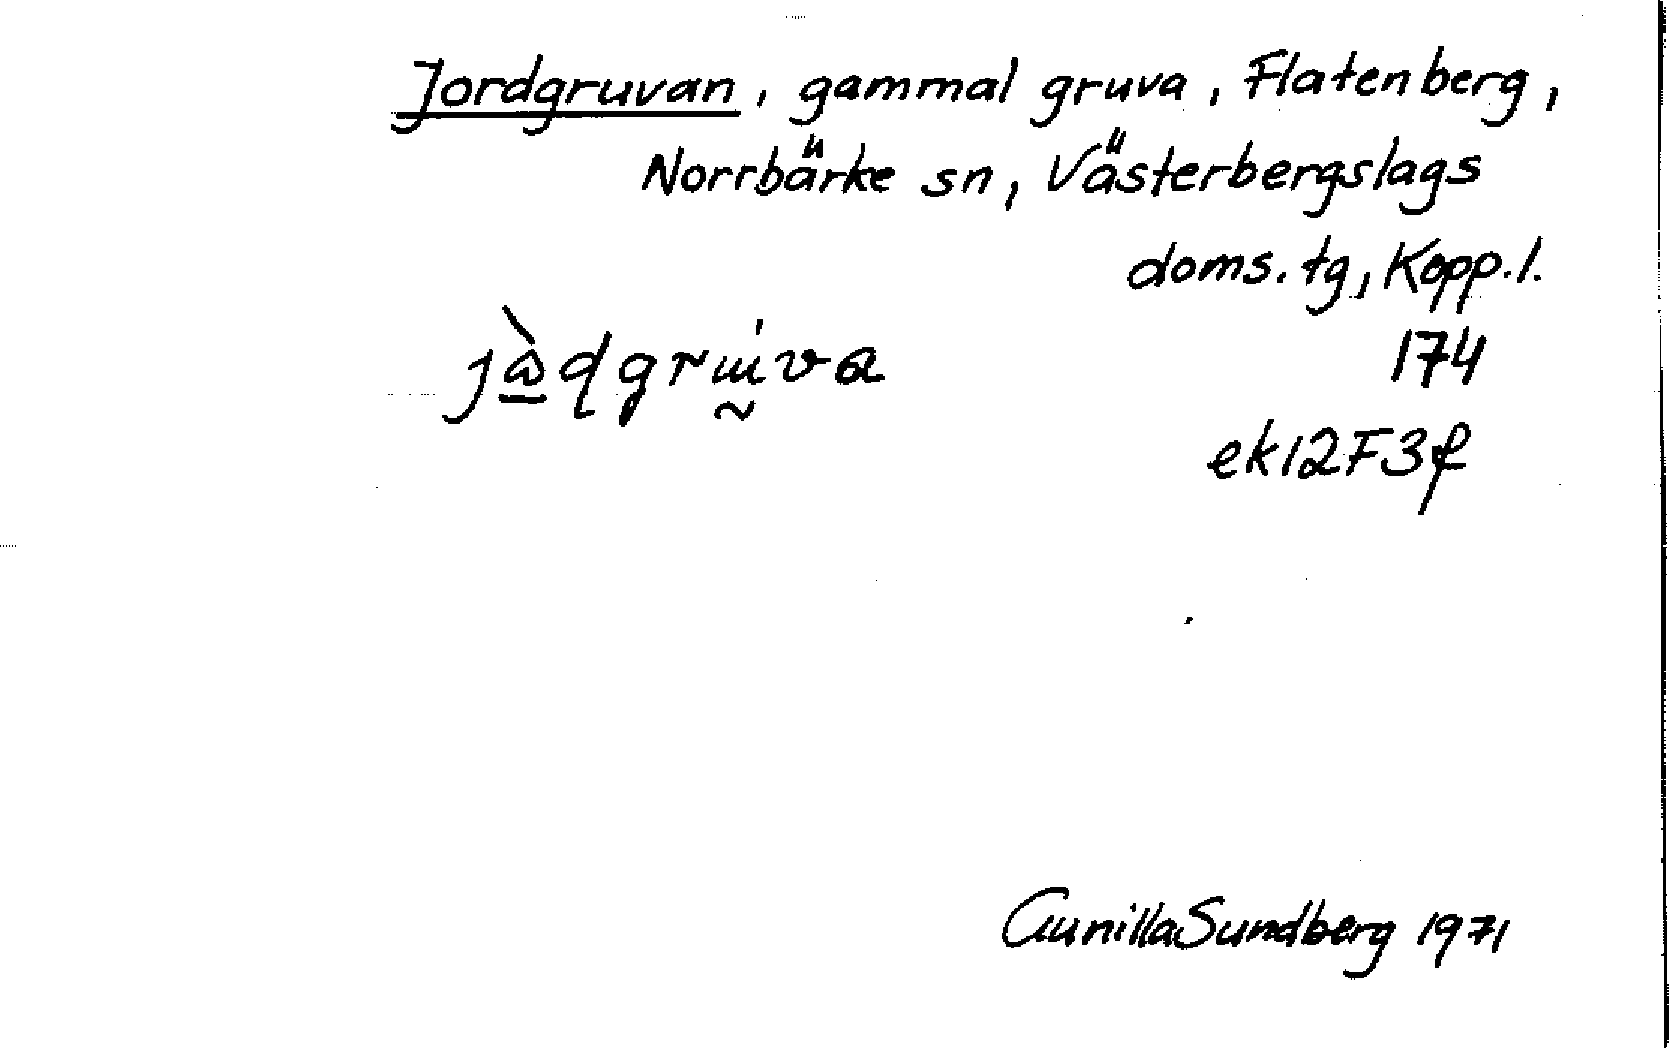 Jordgruvan, gammal gruva, Flatenberg,
Norrbärke sn, Västerbergslags
doms. tg, Kopp. l.
174
ek12F3f
Gunilla Sundberg 1971